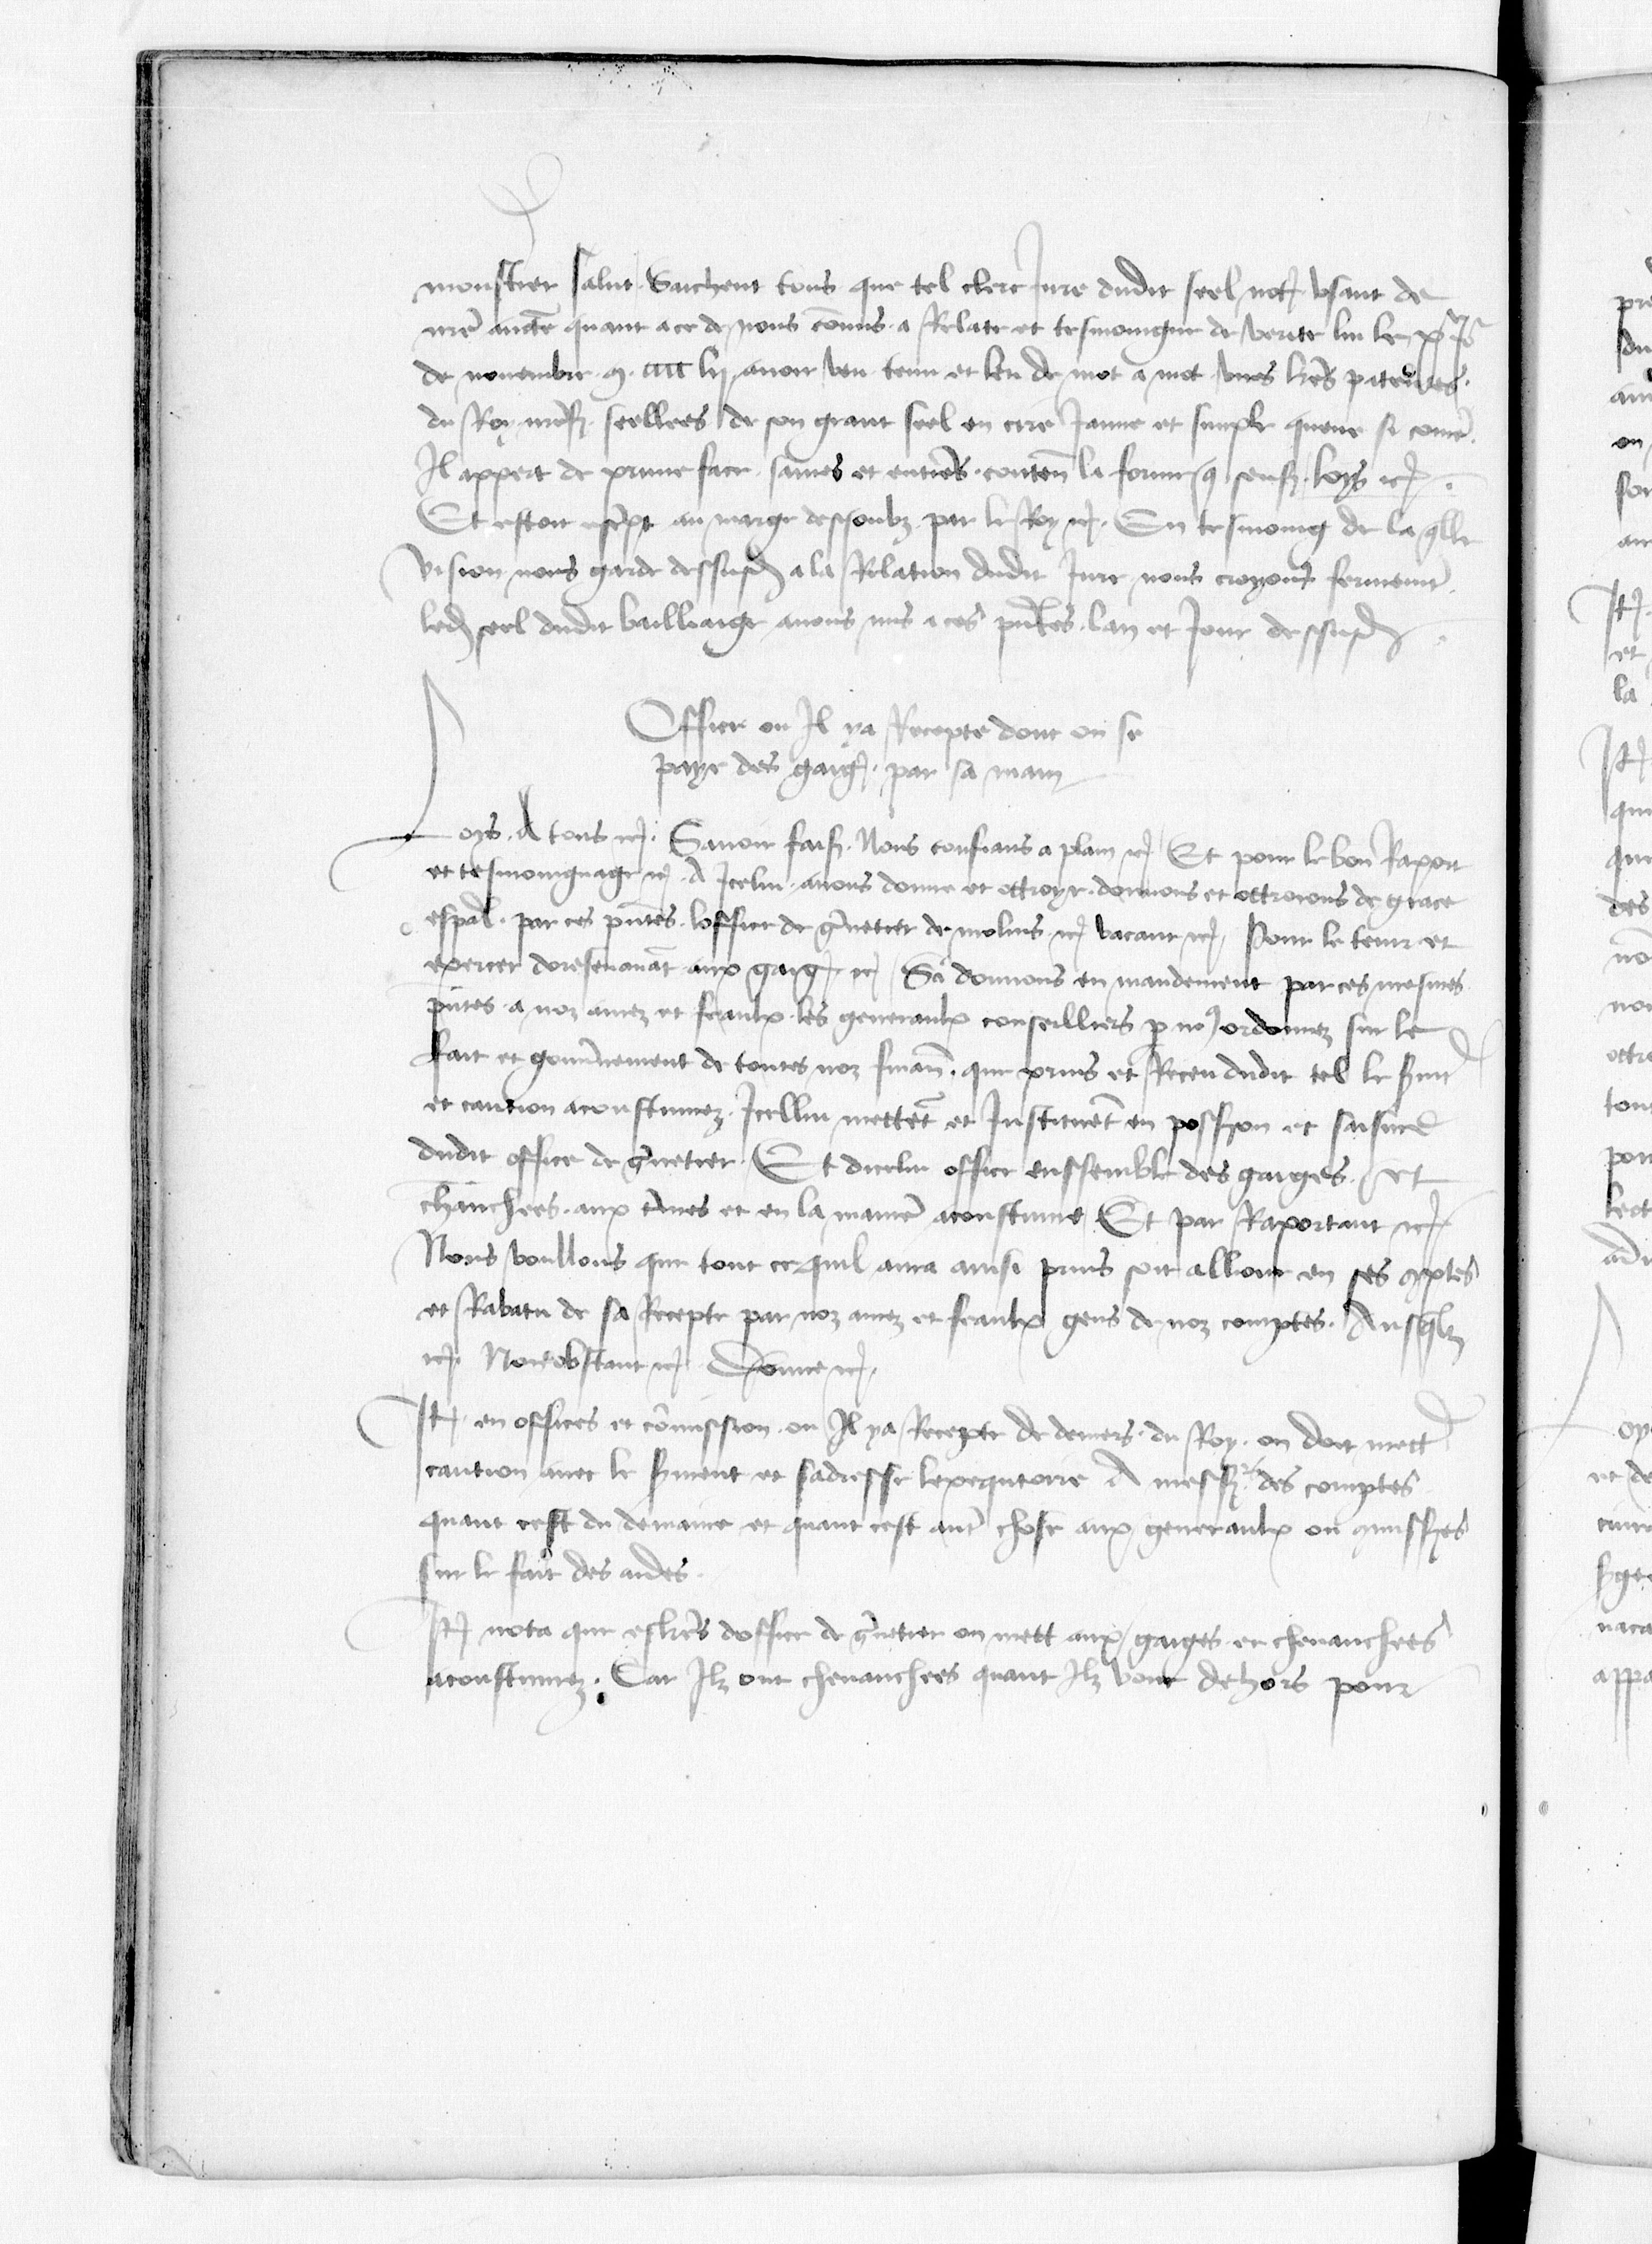 monstier salut Saichent tous que tel clerc Jure dudit seel not usant de
nre aucte quant a ce de nous comis a Relate et tesmoingne de verite lui le
de novembre m cccc lxj avoir veu tenu et leu de mot a mot unes lres patentes
du Roy nres seellees de son grant seel en cire Jaune et simple queue si come
Il appert de prime face saines et entieres conten la forme q sensuit loys etc
Et estoit escript au marge dessoubz par le Roy etc En tesmoing de la qlle
vision nous garde dessusd a la Relation dudit Jure nous croyons fermement
led seel dudit bailliaige avons mis a ces pntes lan et Jour dessusd
Office ou Il ya Recepte dont on se
paye des gaig par sa main
Loys A tous etc Savoir fais Nous confians a plain etc Et pour le bon Rapport
et tesmoingnage etc A Icelui avons donne et ottroye donnons et ottroions de grace
espal par ces pntes loffice de gnetier de molins etc vacant etc Pour le tenir et
exercer doresenavat aux gaig etc Si donnons en mandement par ces mesmes
pntes a noz amez et feaulx les generaulx conseilliers p no ordonnez sur le
fait et gouvnement de toutes noz finan que prins et Receu dudit tel le smt
et caution acoustumez Icellui mettet et Instituet en possion et saisine
dudit office de gnetier Et dicelui office enssemble des gaiges et
chauchees aux tmes et en la manie acoustume Et par Raportant etc
Nous voullons que tout ce quil aura ainsi prins soit alloue en ses comptes
et Rabatu de sa Recepte par noz amez et feaulx gens de noz comptes Ausqlz
etc Nonobstant etc Donne etc
It en offices et comission ou Il ya Recepte de deniers du Roy on doit mett
caution avec le sment et sadresse lexequtoire A mess des comptes
quant cest du demaine et quant cest aut chose aux generaulx ou comissres
sur le fait des aides
It nota que es lres doffice de gnetier on mett aux gaiges et chevauchees
acoustumez Car Ilz ont chevauchees quant Ilz vont dehors pour